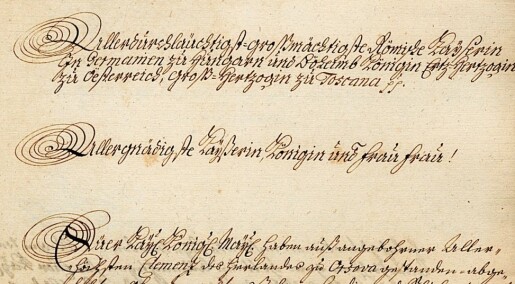 Allerdurchläuchtigst-großmächtigste Römische Kayserin
In Germanien zu Hungarn und Böheimb Königin Ertz-Hertzogin
zu Oesterreich, Groß-Hertzogin zu Toscana
Allergnädigste Kayßerin, Königin und Frau Frau!
Euer Kay. König. May. haben auß angebohrner Aller-
höchsten Clemenz des Herlandes zu Orsova gestanden-abge-